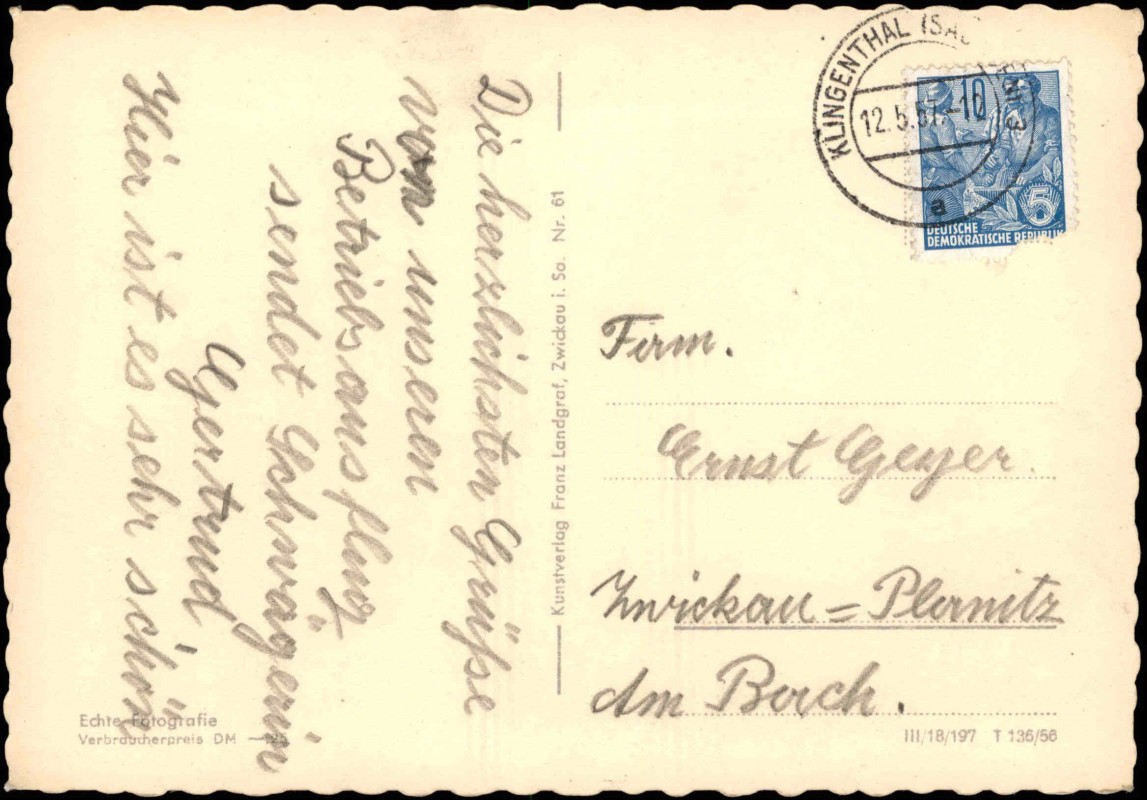 Die herzlichsten Grüsse
von unseren
Betriebsausflug
sendet Schwägerin
Gertrud
Hier ist es sehr schön
Echte Fotografie
Verbraucherpreis DM
Kunstverlag Franz Landgraf, Zwickau i. Sa. Nr. 61
KLINGENTHAL (SA
12.5.57.-10
a
10
5
DEUTSCHE
DEMOKRATISCHE REPUBLIK
Firm.
Ernst Geyer.
Zwickau = Planitz
Am Borch.
III/18/197 T 136/56